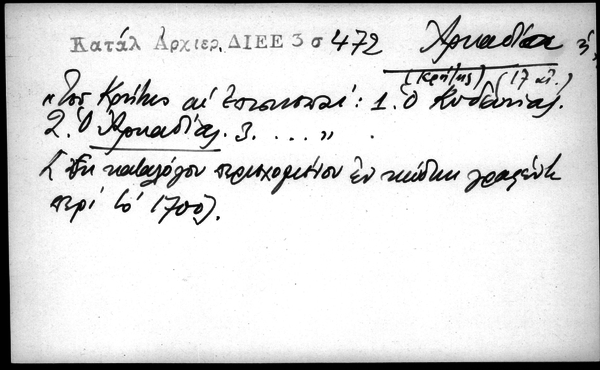 Κατάλ Ἀρχιερ. ΔΙΕΕ 3 σ 472 Ἀρκαδία
(Κρήτης) (17 αἰ.)
"Τοῦ Κρήτης αἱ ἐπισκοπαί: 1. Ὁ Κυδωνίας.
2. Ὁ Ἀρκαδίας. 3. . . . . " .
(Ἐκ καταλόγου περιεχομένου ἐν κώδικι γραφέντι
περί τό 1700).